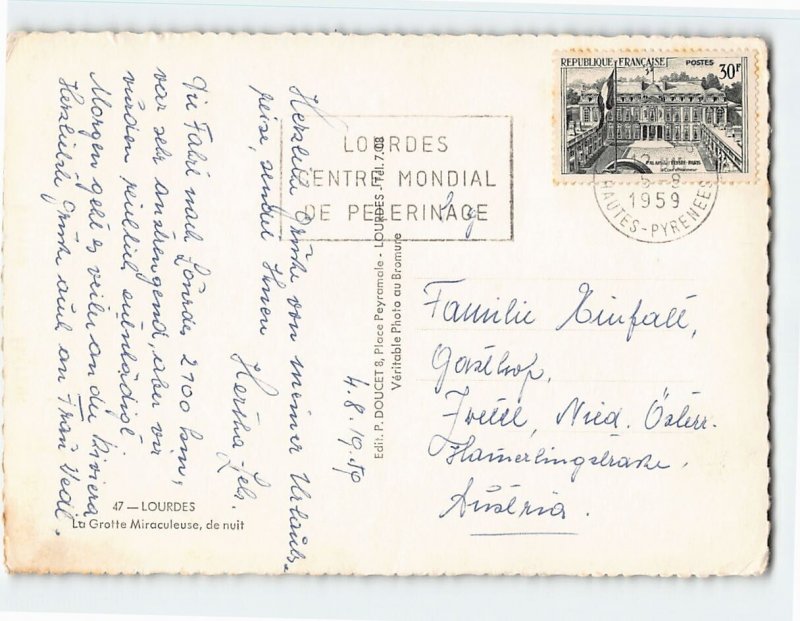 Herzliche Grüße von meiner Urlaubs-
reise, sendet Ihnen
Hertha
4.8.1959
Die Fahrt nach Lourdes 2700 km,
war sehr anstrengend, aber wir
wurden reichlich entschädigt.
Morgen geht es weiter an die Riviera
Herzliche Grüße auch an Frau
47 — LOURDES
La Grotte Miraculeuse, de nuit
Edit. P. DOUCET 8, Place Peyramale - LOURDES - Tél. 7.08
Véritable Photo au Bromure
LOURDES
CENTRE MONDIAL
DE PELERINAGE
REPUBLIQUE FRANÇAISE POSTES 30F
1959
HAUTES-PYRENEES
Familie Einfalt,
Gasthof,
Zwettl, Nied. Österr.
Hamerlingstrasse.
Austria.